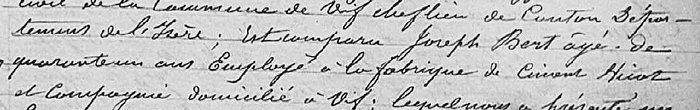 civil de la Commune de Vif cheflieu de Canton Dépar-
tement de l'Isère ; Est comparu Joseph Bert âgé de
quarante un ans Employé à la fabrique de Ciment
et Compagnie domicilié à Vif ; lequel nous a présenté